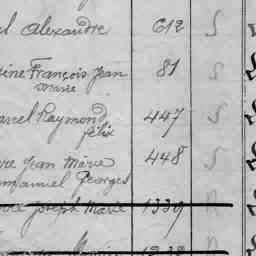 el Alexandre 612 S
ine François Jean 81 S
Marie
arcel Raymond 447 S
félix
re Jean Marie 448 S
mmanuel Georges
Joseph Marie 1339 R